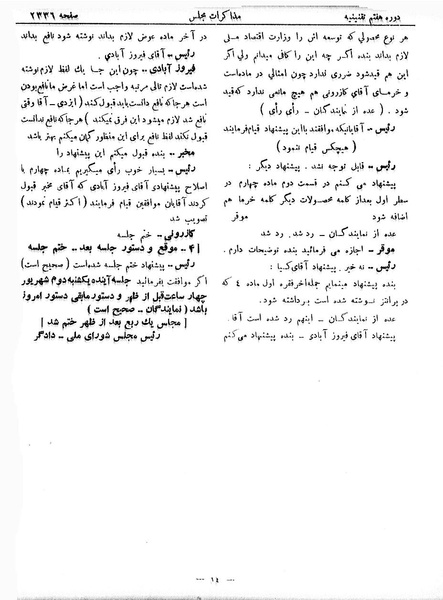 دوره هفتم تقنینیه
مذاکرات مجلس
صفحه ۲۳۳۶
هر نوع محصولی که توسعه اش را وزارت اقتصاد ملی
لازم بداند بنده اگر چه این را کافی میدانم ولی اگر
این هم قیدشود ضرری ندارد چون امثالی در ماده است
و خرمای آقای کازرونی هم هیچ مانعی ندارد که قید
شود ( عده از نمایندگان - رأی رأی )
رئیس - آقایانیکه موافقند با این پیشنهاد قیام فرمایند
( هیچکس قیام ننمود )
رئیس - قابل توجه نشد . پیشنهاد دیگر :
پیشنهاد می کنم در قسمت دوم ماده چهارم در
سطر اول بعد از کلمه محصولات دیگر کلمه خرما هم
اضافه شود موقر
عده از نمایندگان - رد شد، رد شد
موقر - اجازه می فرمائید بنده توضیحات دارم .
رئیس - نه خیر . پیشنهاد آقای کیا :
بنده پیشنهاد مینمایم جمله آخر فقره اول ماده ٤ که
در پرانتز نوشته شده است برداشته شود.
عده از نمایندگان - اینهم رد شده است آقا .
پیشنهاد آقای فیروز آبادی - بنده پیشنهاد می کنم
در آخر ماده عوض لازم بداند نوشته شود نافع بداند
رئیس - آقای فیروز آبادی .
فیروز آبادی - چون این جا یک لفظ لازم نوشته
شده است لازم تالی مرتبه واجب است اما غرض ما نافع بودن
است هر جا که نافع دانست باید قبول کند ( ایزدی - آقا وقتی
نافع شد لازم میشود این فرق نمیکند ) هر جا که نافع ندانست
قبول نکند لفظ نافع برای این منظور گمان میکنم بهتر باشد
مخبر - بنده قبول میکنم این پیشنهاد را
رئیس - بسیار خوب رأی میگیریم بماده چهارم با
اصلاح پیشنهادی آقای فیروز آبادی که آقای مخبر قبول
کردند آقایان موافقین قیام فرمایند ( اکثر قیام نمودند )
تصویب شد
کازرونی - ختم جلسه
[ ۴ - موقع و دستور جلسه بعد - ختم جلسه ]
رئیس - پیشنهاد ختم جلسه شده است ( صحیح است )
اگر موافقت بفرمائید جلسه آینده یکشنبه دوم شهریور
چهار ساعت قبل از ظهر و دستور مابقی دستور امروز
باشد ( نمایندگان - صحیح است )
[ مجلس یک ربع بعد از ظهر ختم شد ]
رئیس مجلس شورای ملی - دادگر
— ١٤ —